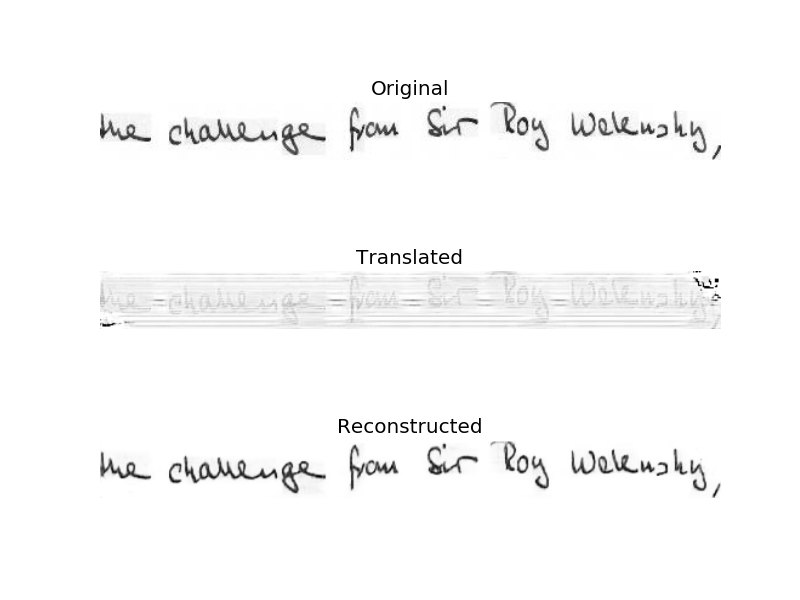 Original
the challenge from Sir Roy Welensky,
Translated
the challenge from Sir Roy Welensky,
Reconstructed
the challenge from Sir Roy Welensky,